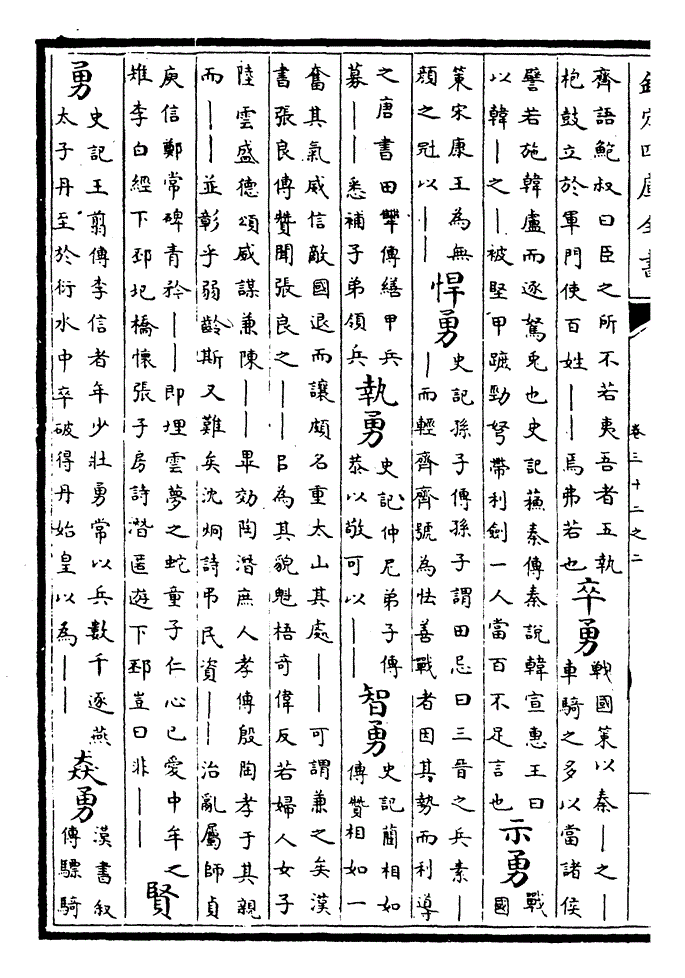 欽定四庫全書
卷三十二之二
齊語鮑叔曰臣之所不若夷吾者五執
枹鼓立於軍門使百姓——焉弗若也
卒勇
戰國策以秦—之—
車騎之多以當諸侯
譬若施韓盧而逐駑兎也史記蘇秦傳秦說韓宣惠王曰
以韓—之—被堅甲蹠勁弩帶利劍一人當百不足言也
示勇
戰
國
策宋康王為無
顔之冠以——
悍勇
史記孫子傳孫子謂田忌曰三晉之兵素—
—而輕齊齊號為怯善戰者因其勢而利導
之唐書田犨傳繕甲兵
募——悉補子弟領兵
執勇
史記仲尼弟子傳
恭以敬可以——
智勇
史記藺相如
傳贊相如一
奮其氣威信敵國退而讓頗名重太山其處——可謂兼之矣漢
書張良傳贊聞張良之——㠯為其貌魁梧奇偉反若婦人女子
陸雲盛德頌威謀兼陳——畢効陶潛庶人孝傳殷陶孝于其親
而——並彰乎弱齡斯又難矣沈炯詩弔民資——治亂屬師貞
庾信鄭常碑青矜——即埋雲夢之蛇童子仁心已愛中牟之
雉李白經下邳圯橋懷張子房詩潛匿遊下邳豈曰非——
賢
勇
史記王翦傳李信者年少壯勇常以兵數千逐燕
太子丹至於衍水中卒破得丹始皇以為——
焱勇
漢書叙
傳驃騎